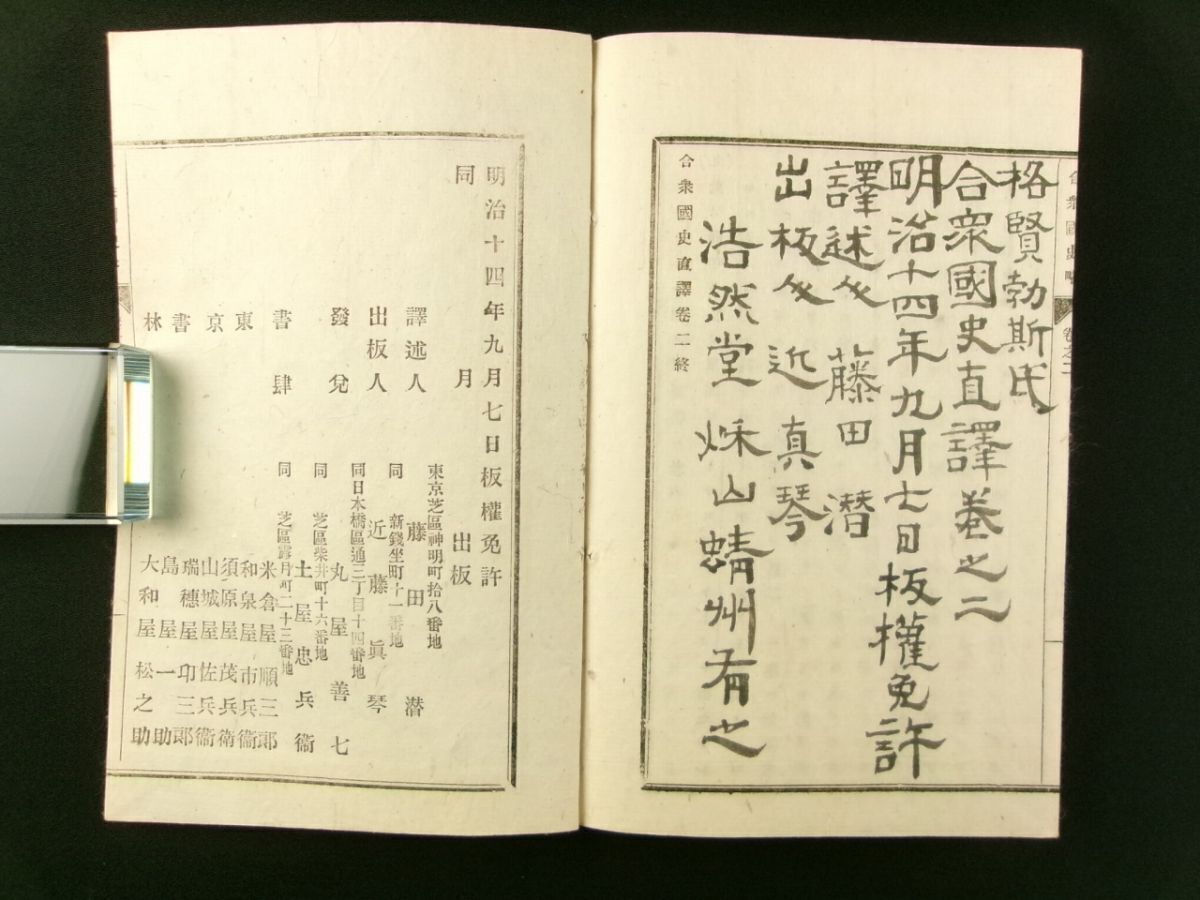 合衆國史畧
卷之二
格賢勃斯氏
合衆國史直譯卷之二
明治十四年九月七日板權免許
譯述人 藤田潛
出板人 近真琴
浩然堂 秌山蜻州有之
合衆國史直譯卷二終
明治十四年九月七日板權免許
同月 出板
東京芝區神明町拾八番地
譯述人 藤田潛
同 新錢坐町十一番地
出板人 近藤眞琴
同日本橋區通三丁目十四番地
發兌 丸屋善七
同 芝區柴井町十六番地
書肆 土屋忠兵衞
同 芝區露月町二十三番地
米倉屋順三郎
東 和泉屋市兵衞
須原屋茂兵衞
京 山城屋佐兵衞
書 瑞穗屋卯三郎
島屋一助
林 大和屋松之助